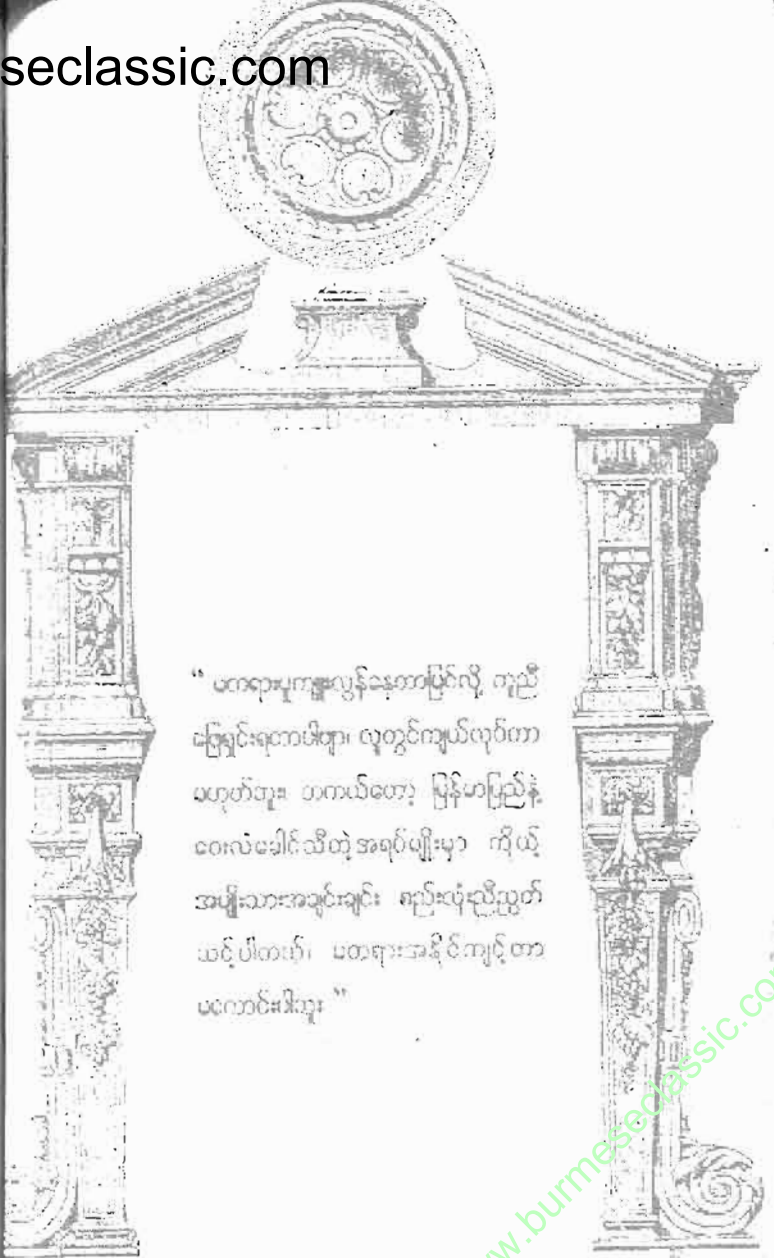 seclassic.com
“ မတရားပြုကျူးလွန်နေတာမြင်လို့ ကူညီ
ဖြေရှင်းရတာပါဗျာ၊ လူတွင်ကျယ်လုပ်တာ
မဟုတ်ဘူး၊ တကယ်တော့ မြန်မာပြည်နဲ့
ဝေးလံခေါင်သီတဲ့အရပ်မျိုးမှာ ကိုယ့်
အမျိုးသားအချင်းချင်း စည်းလုံးညီညွတ်
သင့်ပါတယ်၊ မတရားအနိုင်ကျင့်တာ
မကောင်းပါဘူး ”
www.burmeseclassic.com